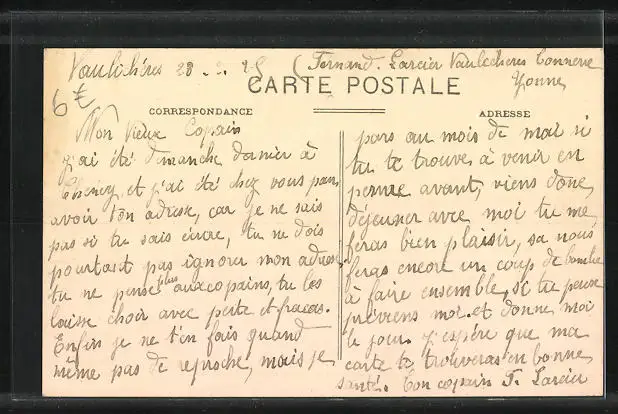 Vaulichères 28 - 2 - 25 (Fernand. Larcier Vaulichères Tonnerre
Yonne
CARTE POSTALE
6 €
CORRESPONDANCE
Mon Vieux Copain
j'ai été dimanche dernier à
Cheney, et j'ai été chez vous pour
avoir ton adresse, car je ne sais
pas si tu sais écrire, tu ne dois
pourtant pas ignorer mon adresse
tu ne pense plus aux copains, tu les
laisse choir avec perte et fracas.
Enfin je ne t'en fais quand
même pas de reproche, mais je
ADRESSE
pars au mois de mai si
tu te trouve à venir en
perme avant, viens donc
déjeuner avec moi tu me
feras bien plaisir, sa nous
feras encore un coup de bombe
à faire ensemble, si tu peuse
préviens moi et donne moi
le jour. J'espère que ma
carte te trouveras en bonne
santé. Ton copain F. Larcier